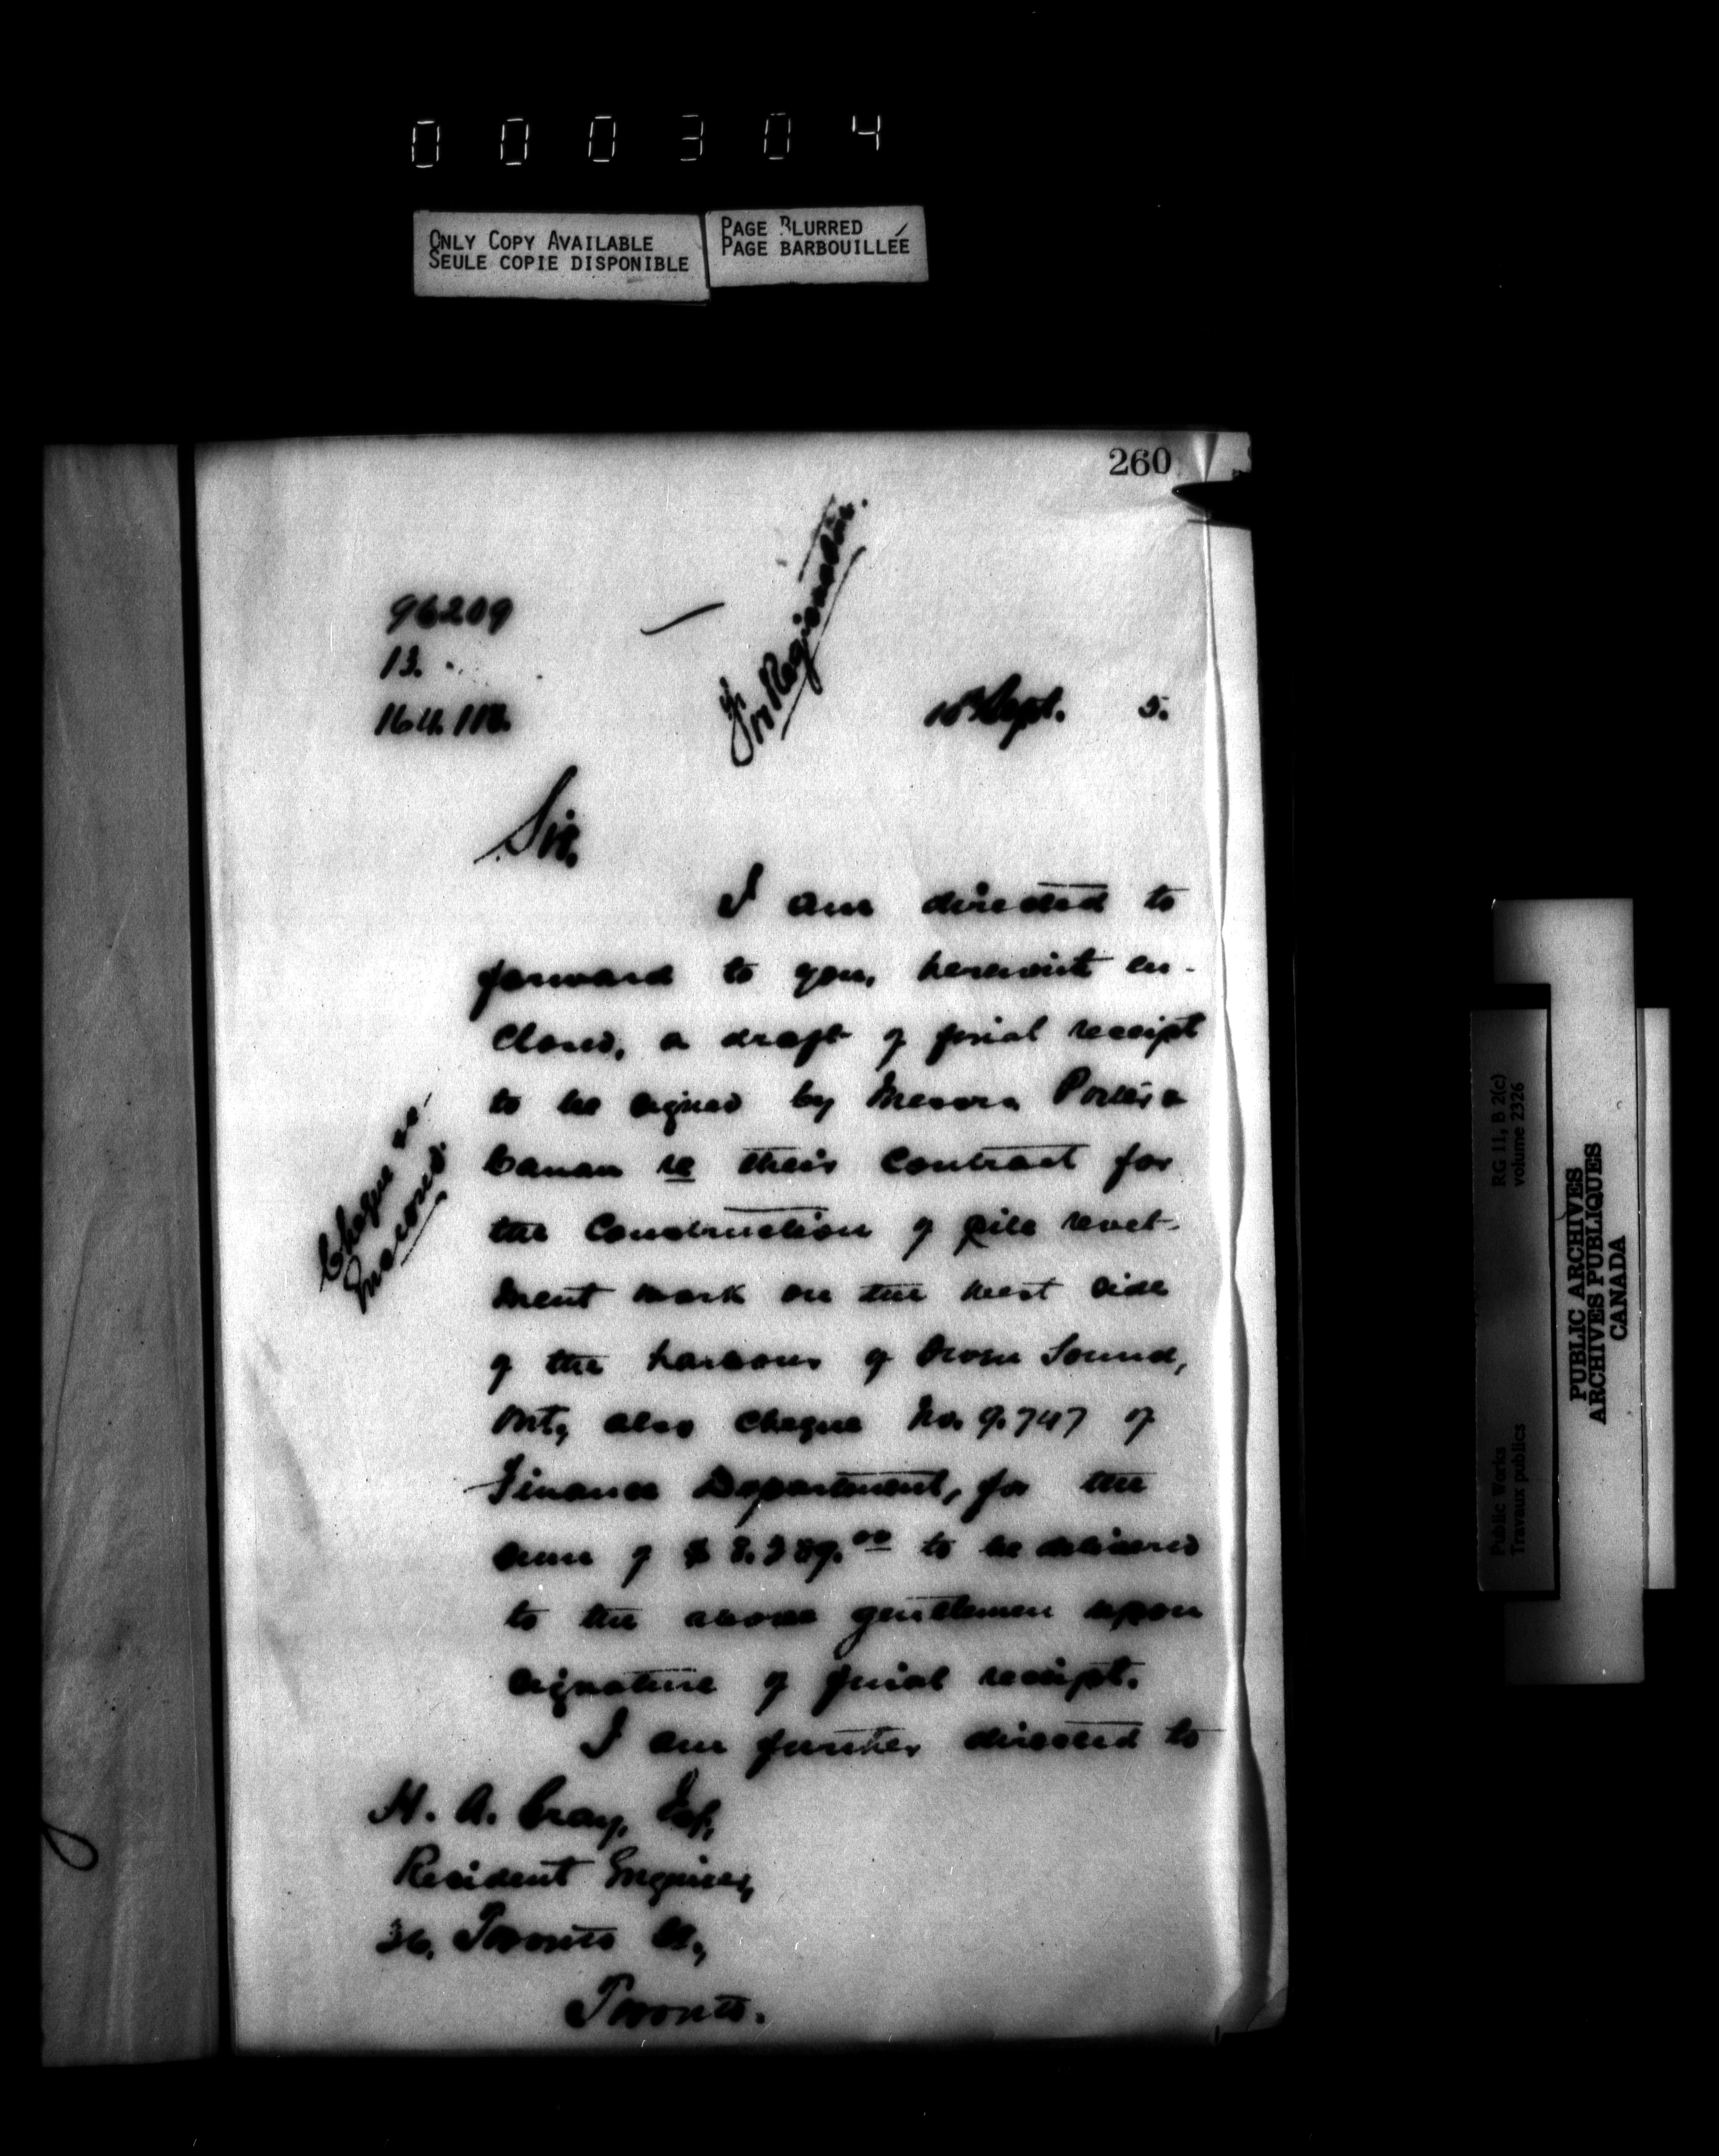 000304
ONLY COPY AVAILABLE
SEULE COPIE DISPONIBLE
PAGE BLURRED
PAGE BARBOUILLÉE
260
96209
13.
Registration.
Sept. 5.
Sir,
I am directed to
forward to you, herewith en-
closed, a draft of final receipt
to be signed by Messrs
re their contract for
the construction of pile revet-
ment work on the west side
of the harbour of Owen Sound,
Ont, also cheque No. 9.747 of
Finance Department, for the
sum of $ to be delivered
to the above gentlemen upon
signature of final receipt.
I am further directed to
Cheque
H. A. Gray, Esq,
Resident Engineer,
36, Toronto St,
Toronto.
RG 11, B 2(c)
volume 2326
Public Works
Travaux publics
PUBLIC ARCHIVES
ARCHIVES PUBLIQUES
CANADA